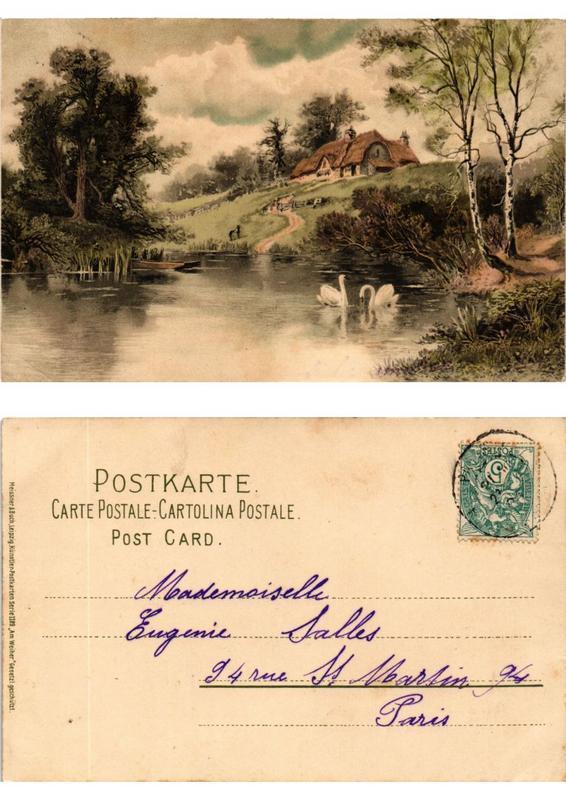 POSTKARTE.
CARTE POSTALE-CARTOLINA POSTALE.
POST CARD.
POSTES
5
Mademoiselle
Eugenie Salles
94 rue St Martin 94
Paris
Meissner & Buch, Leipzig. Künstler-Postkarten Serie "Am Weiher" Gesetzl. geschützt.